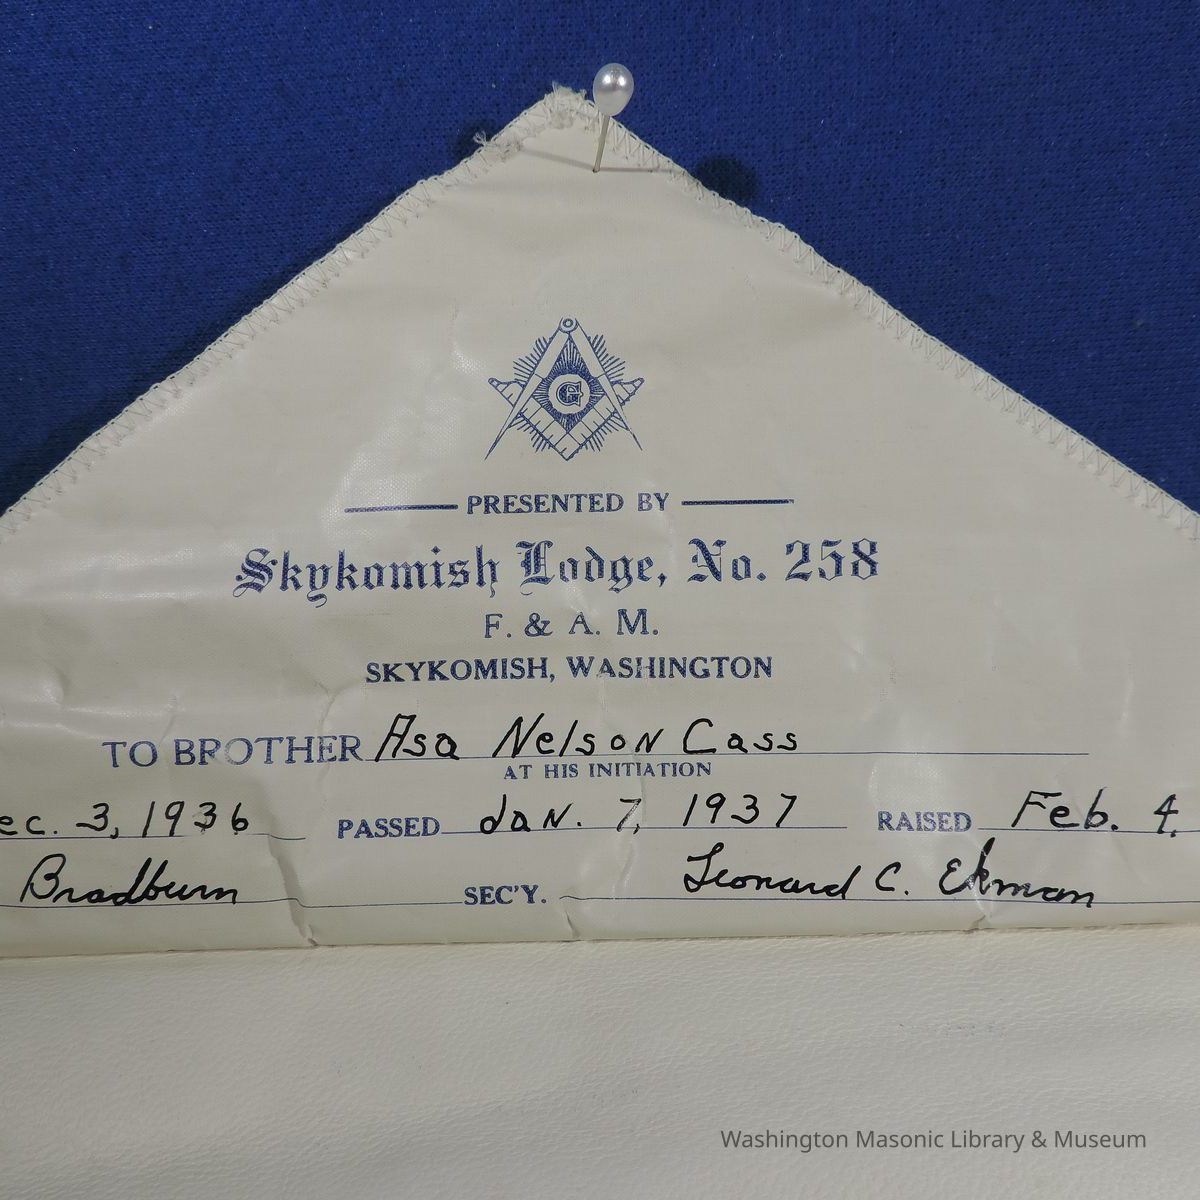 G
PRESENTED BY
Skykomish Lodge, No. 258
F. & A. M.
SKYKOMISH, WASHINGTON
TO BROTHER Asa Nelson Cass
AT HIS INITIATION
ec. 3, 1936 PASSED Jan. 7, 1937 RAISED Feb. 4,
Bradburn SEC'Y. Leonard C. Ekman
Washington Masonic Library & Museum